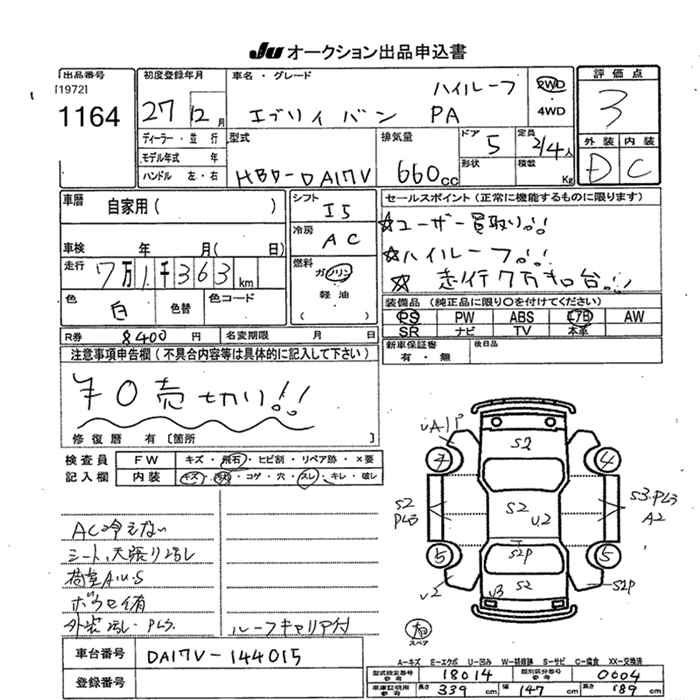 JU オークション出品申込書
出品番号
[1972]
1164
初度登録年月
27 12月
ディーラー・並行
モデル年式 年
ハンドル 左・右
車名・グレード
ハイルーフ
エブリィ バン PA
2WD
・
4WD
型式
HBD-DA17V
排気量
660cc
ドア 5
形状
定員 2/4人
積数 Kg
評価点
3
外装 内装
D C
車暦 自家用( )
車検 年 月( 日)
走行 7万1千363km
色 白 色替 色コード
シフト
I5
冷房
AC
燃料
ガソリン
・
軽油
( )
セールスポイント(正常に機能するものに限ります)
☆ユーザー買取り!!
☆ハイルーフ!!
☆走行7万キロ台!!
装備品(純正品に限り○を付けてください)
PS PW ABS エアB AW
SR ナビ TV 本革
R券 8400円 名変期限 月 日
新車保証書
有・無
後日品
注意事項申告欄(不具合内容等は具体的に記入して下さい)
¥0売切り!!
修復暦 有[箇所 ]
検査員 FW キズ・飛石・ヒビ割・リペア跡・×要
記入欄 内装 キズ・汚れ・コゲ・穴・スレ・キレ・破レ
AC冷えない
シート、天張り汚レ
荷室A.U.S
外装汚レ・
ルーフキャリア付
UA1P
S2
7 4
S2
S2
U2
S3
A2
5 5
S2P
S2
U2
U3
S2P
スペア
A-キズ E-エクボ U-凹み W-修復跡 S-サビ C-腐食 XX-交換済
車台番号 DA17V-144015
登録番号
型式指定番号
参考
18014
類別区分番号
参考
0004
車庫証明用
参考
長さ 339cm 幅 147cm 高さ 189cm